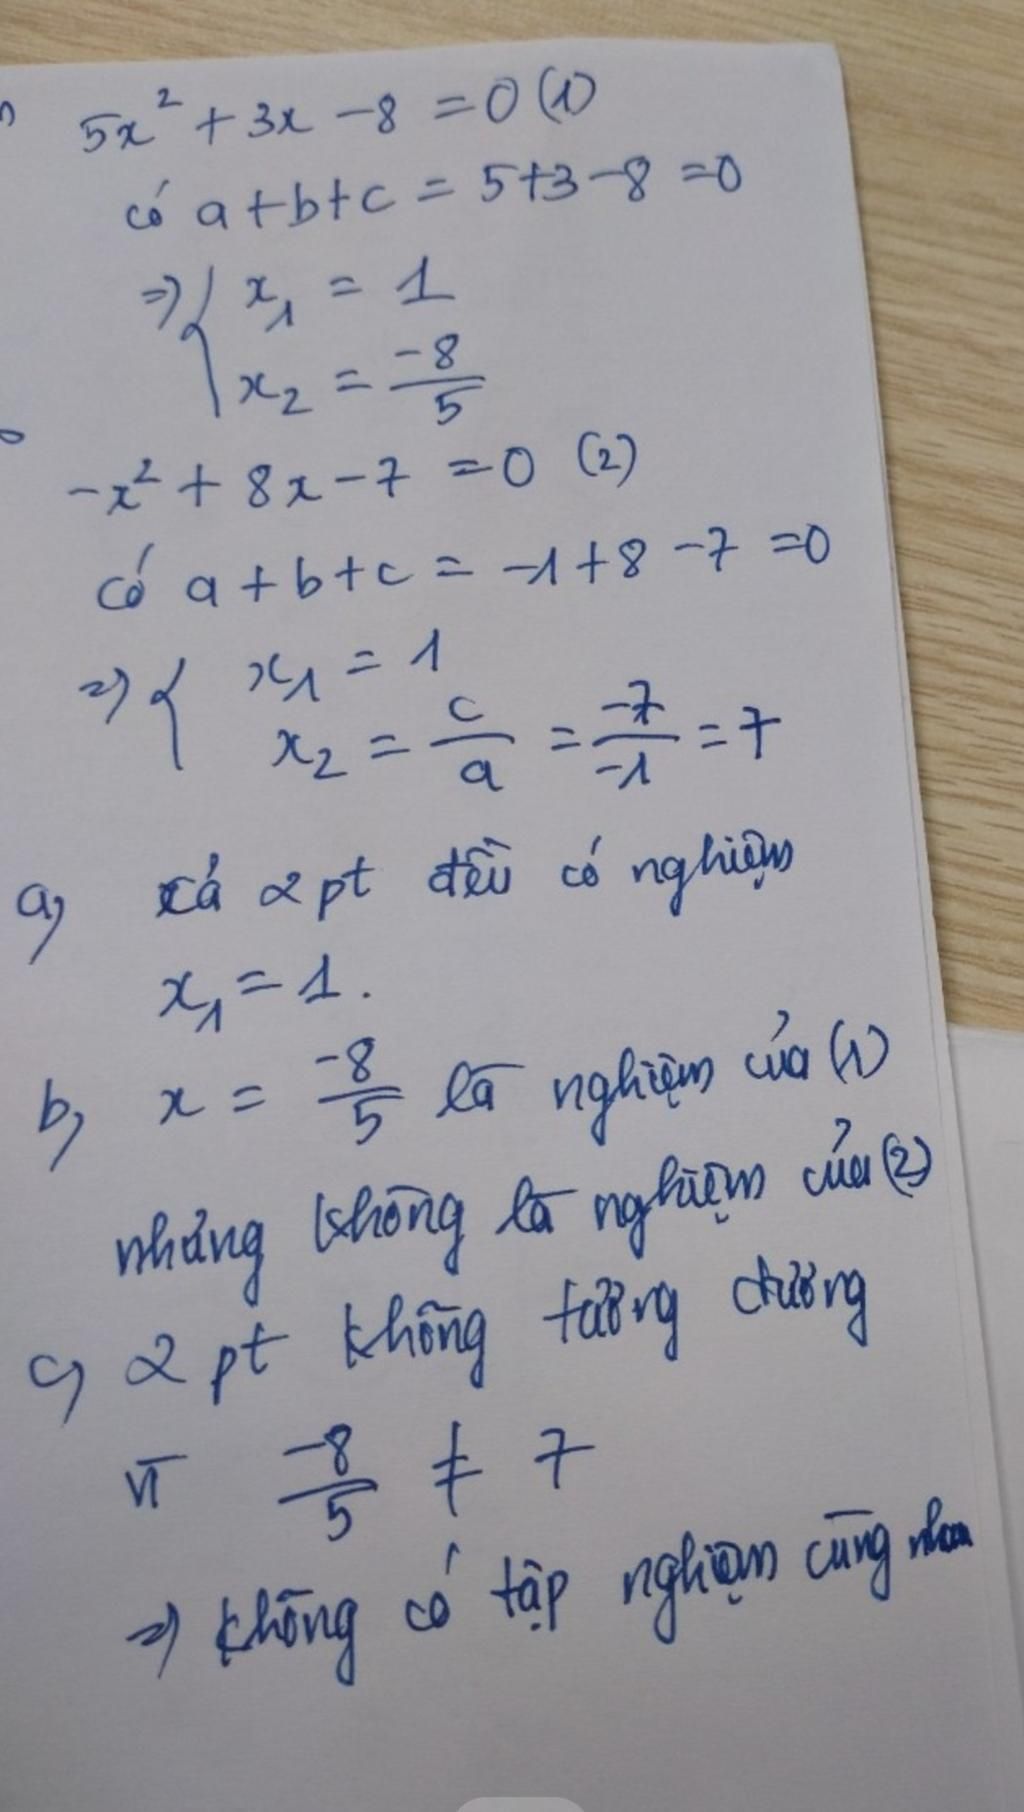 5x² + 3x - 8 = 0 (1)
có a + b + c = 5 + 3 - 8 = 0
=> { x₁ = 1
x₂ = -8/5
-x² + 8x - 7 = 0 (2)
có a + b + c = -1 + 8 - 7 = 0
=> { x₁ = 1
x₂ = c/a = -7/-1 = 7
a) cả 2 pt đều có nghiệm
x₁ = 1.
b) x = -8/5 là nghiệm của (1)
nhưng không là nghiệm của (2)
c) 2 pt không tương đương
vì -8/5 ≠ 7
=> không có tập nghiệm cùng nhau